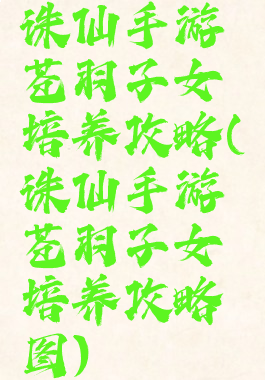 诛仙手游
苍羽子女
培养攻略(
诛仙手游
苍羽子女
培养攻略
图)